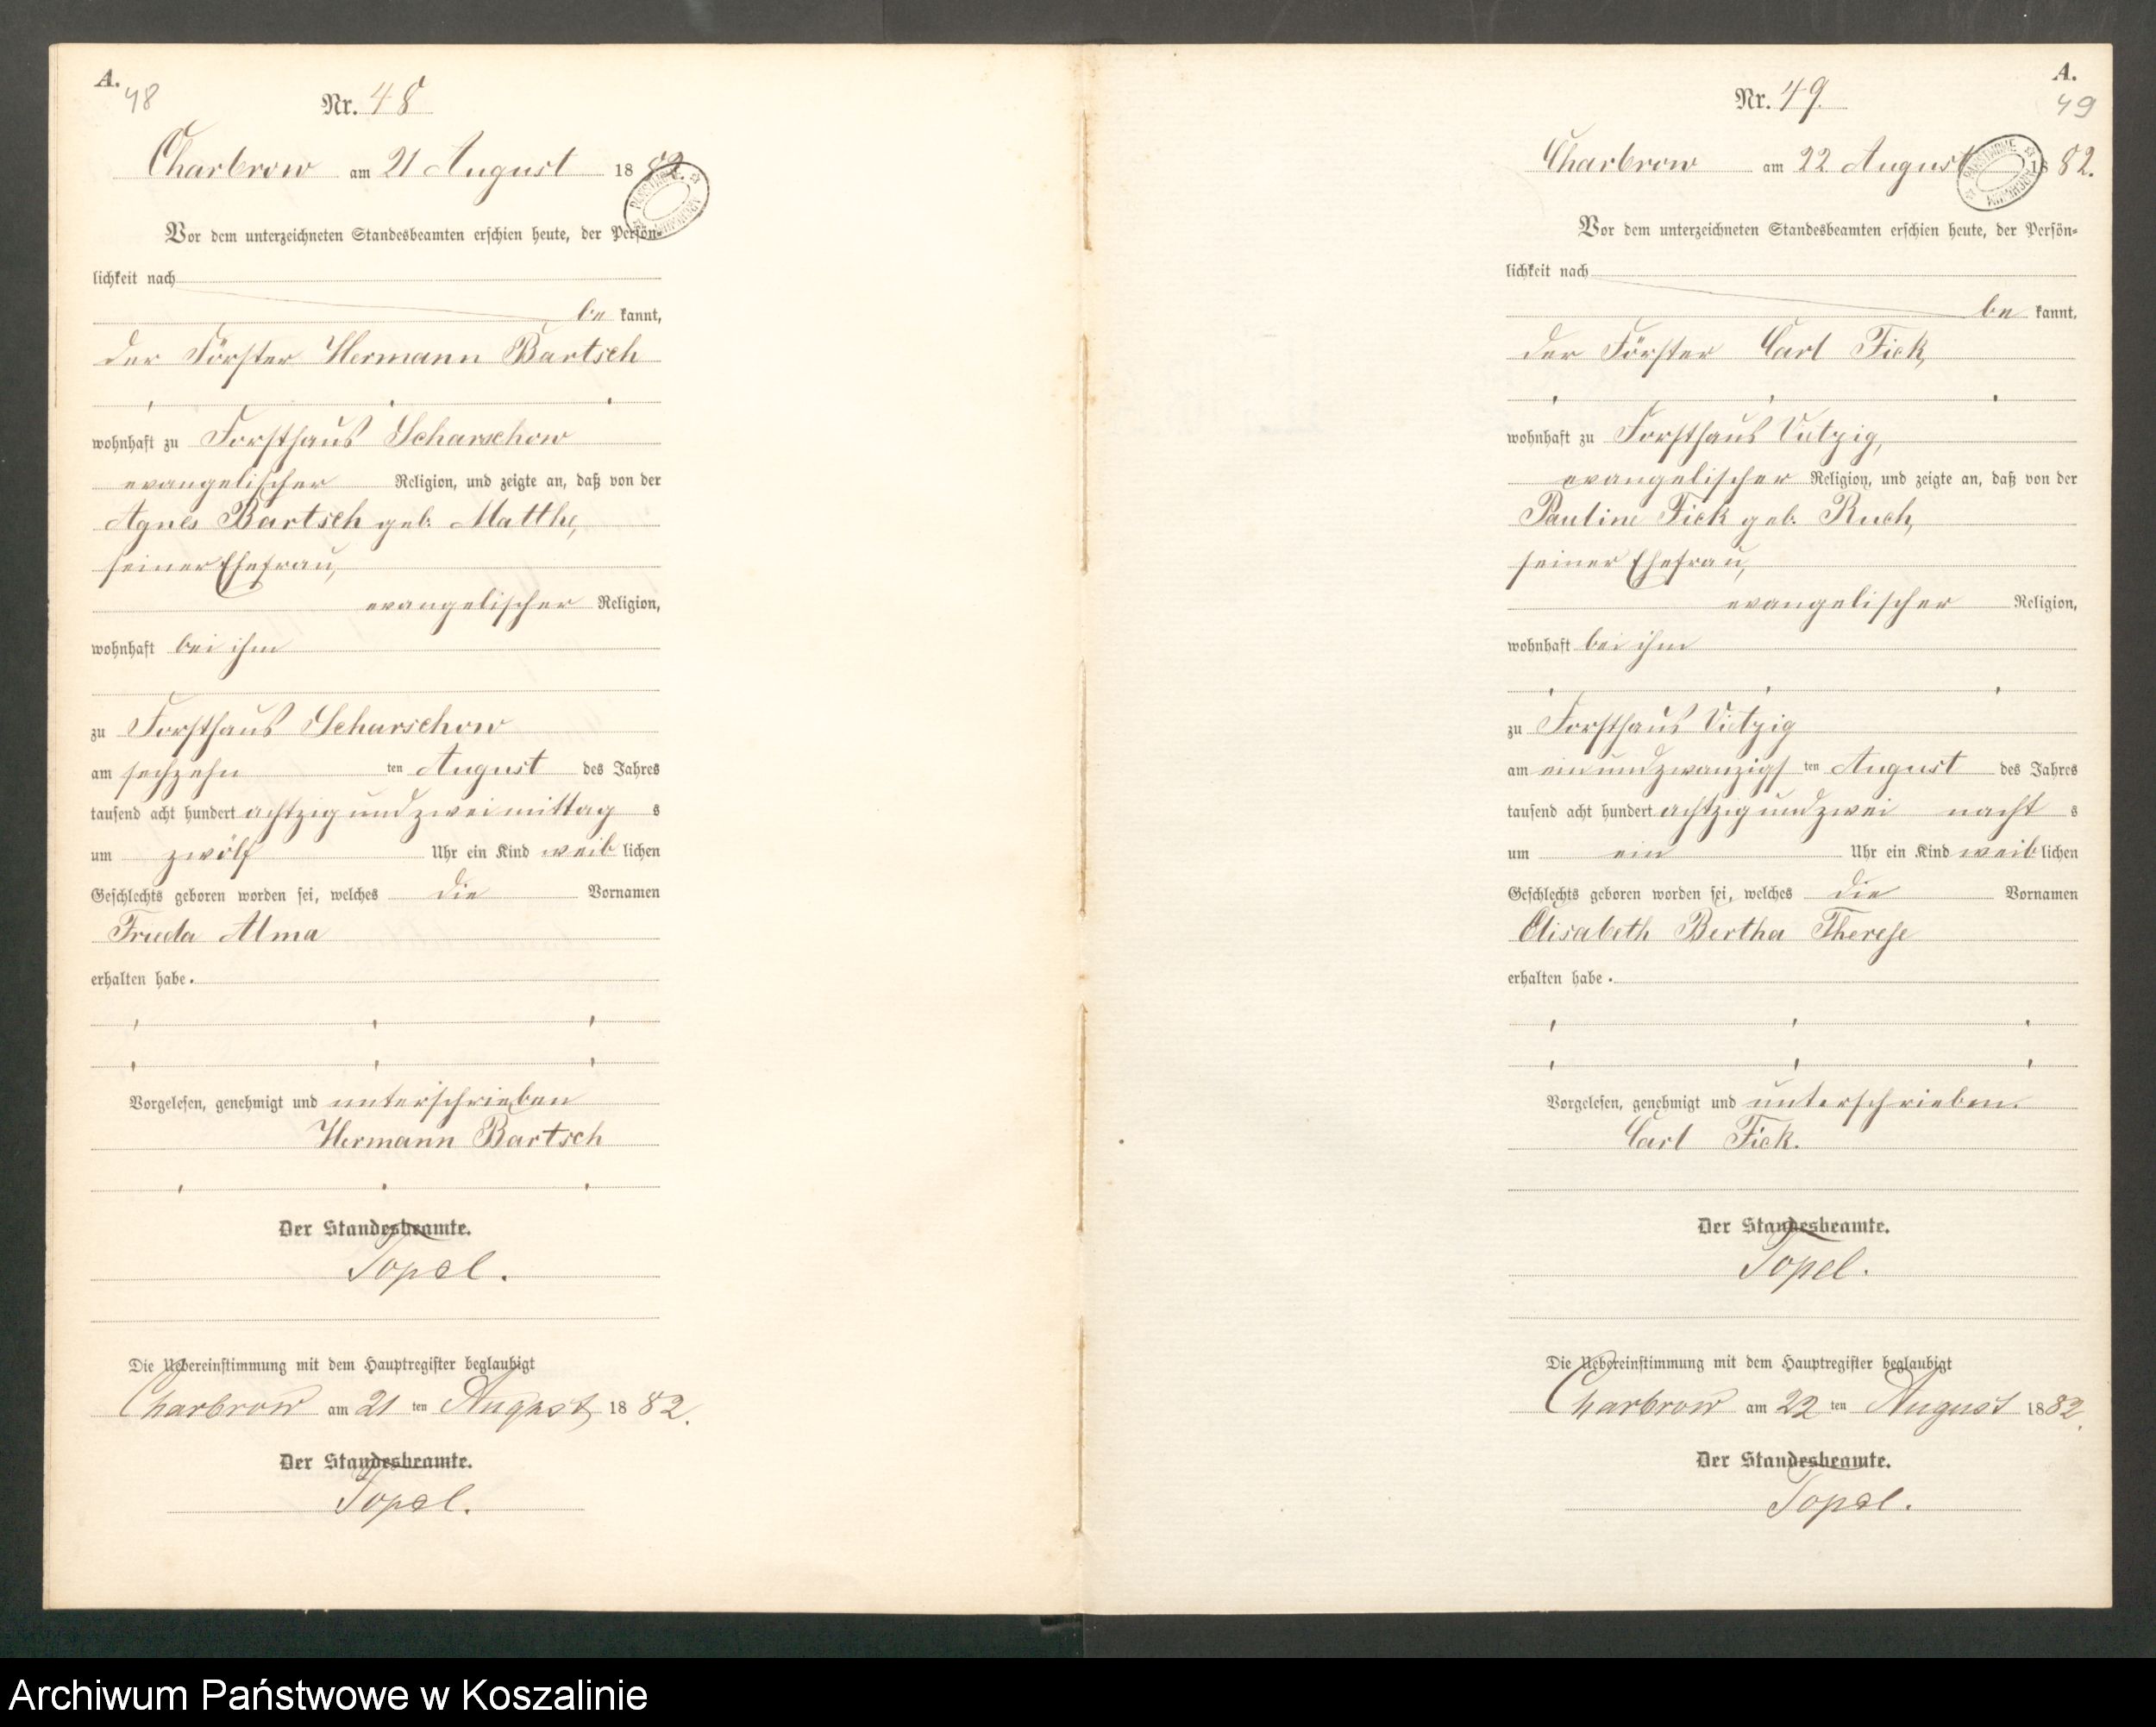 A.
48
Nr. 48
Charbrow am 21 August 1882.
Vor dem unterzeichneten Standesbeamten erschien heute, der Persön-
lichkeit nach
be kannt,
der Förster Hermann Bartsch
wohnhaft zu Forsthaus Scharschow
evangelischer Religion, und zeigte an, daß von der
Agnes Bartsch geb. Matthe,
seiner Ehefrau,
evangelischer Religion,
wohnhaft bei ihm
zu Forsthaus Scharschow
am sechzehn ten August des Jahres
tausend acht hundert achtzig und zwei mittag s
um zwölf Uhr ein Kind weib lichen
Geschlechts geboren worden sei, welches die Vornamen
Frieda Alma
erhalten habe.
Vorgelesen, genehmigt und unterschrieben
Hermann Bartsch
Der Standesbeamte.
Topel.
Die Uebereinstimmung mit dem Hauptregister beglaubigt
Charbrow am 21 ten August 1882.
Der Standesbeamte.
Topel.
A.
49
Nr. 49.
Charbrow am 22 August 1882.
Vor dem unterzeichneten Standesbeamten erschien heute, der Persön-
lichkeit nach
be kannt,
der Förster Carl Fick,
wohnhaft zu Forsthaus Vietzig,
evangelischer Religion, und zeigte an, daß von der
Pauline Fick geb. Ruch,
seiner Ehefrau,
evangelischer Religion,
wohnhaft bei ihm
zu Forsthaus Vietzig
am ein und zwanzigs ten August des Jahres
tausend acht hundert achtzig und zwei nacht s
um ein Uhr ein Kind weib lichen
Geschlechts geboren worden sei, welches die Vornamen
Elisabeth Bertha Therese
erhalten habe.
Vorgelesen, genehmigt und unterschrieben.
Carl Fick.
Der Standesbeamte.
Topel.
Die Uebereinstimmung mit dem Hauptregister beglaubigt
Charbrow am 22 ten August 1882.
Der Standesbeamte.
Topel.
Archiwum Państwowe w Koszalinie